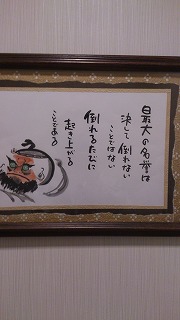 最大の名誉は
決して倒れない
ことではない
倒れるたびに
起き上がる
ことである